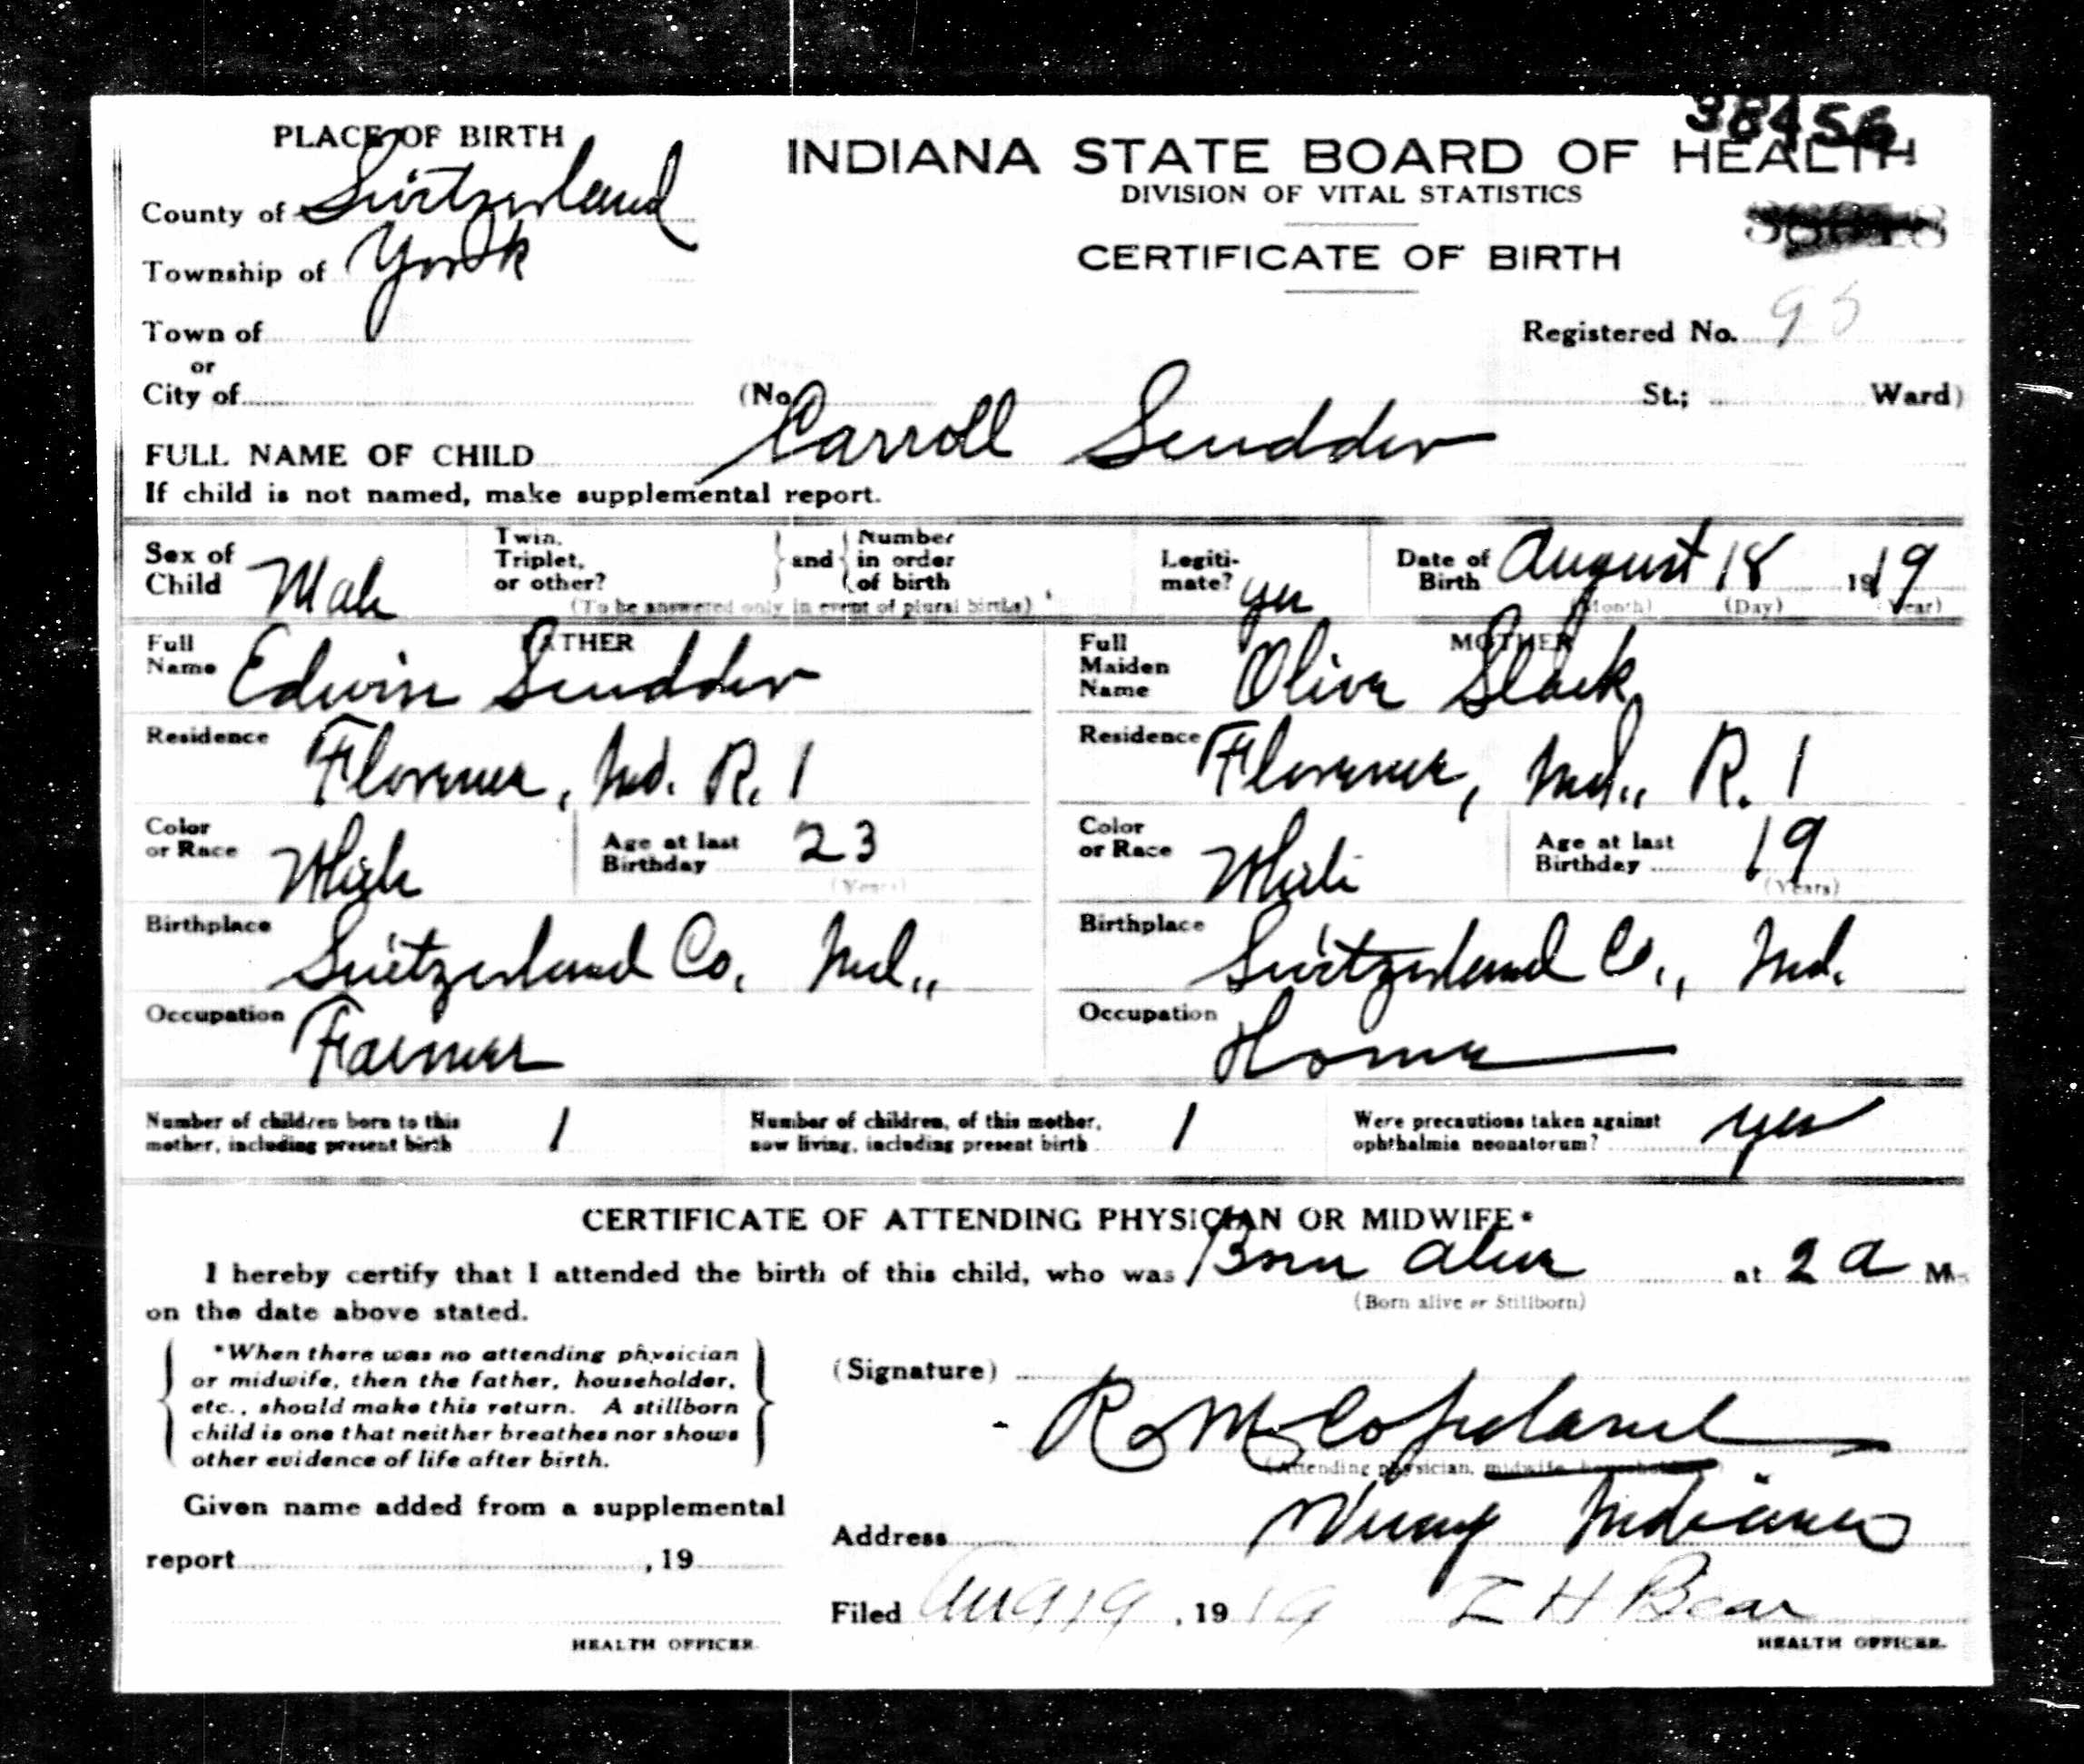 38456
PLACE OF BIRTH
INDIANA STATE BOARD OF HEALTH
DIVISION OF VITAL STATISTICS
County of Switzerland
CERTIFICATE OF BIRTH
Township of York
Town of
Registered No. 95
or
City of (No. St.; Ward)
FULL NAME OF CHILD Carroll Scudder
If child is not named, make supplemental report.
Sex of Child Male
Twin, Triplet, or other? and Number in order of birth
(To be answered only in event of plural births)
Legiti-mate? yes
Date of Birth August 18 1919
(Month) (Day) (Year)
FATHER
Full Name Edwin Scudder
MOTHER
Full Maiden Name Olive Slack
Residence Florence, Ind. R. 1
Residence Florence, Ind., R. 1
Color or Race White
Age at last Birthday 23
(Years)
Color or Race White
Age at last Birthday 19
(Years)
Birthplace Switzerland Co. Ind.,
Birthplace Switzerland Co., Ind.
Occupation Farmer
Occupation Home
Number of children born to this mother, including present birth 1
Number of children, of this mother, now living, including present birth 1
Were precautions taken against ophthalmia neonatorum? yes
CERTIFICATE OF ATTENDING PHYSICIAN OR MIDWIFE*
I hereby certify that I attended the birth of this child, who was Born alive at 2 a M.
(Born alive or Stillborn)
on the date above stated.
*When there was no attending physician
or midwife, then the father, householder,
etc., should make this return. A stillborn
child is one that neither breathes nor shows
other evidence of life after birth.
(Signature) R M Copeland
(Attending physician, midwife, householder)
Given name added from a supplemental
report , 19
Address Vevay Indiana
Filed Aug 19, 1919 L H Bear
HEALTH OFFICER.
HEALTH OFFICER.